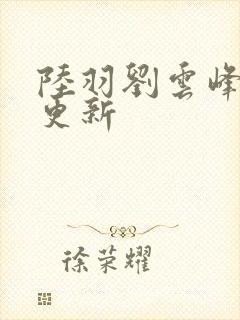 陸羽劉雲峰
更新
徐荣耀